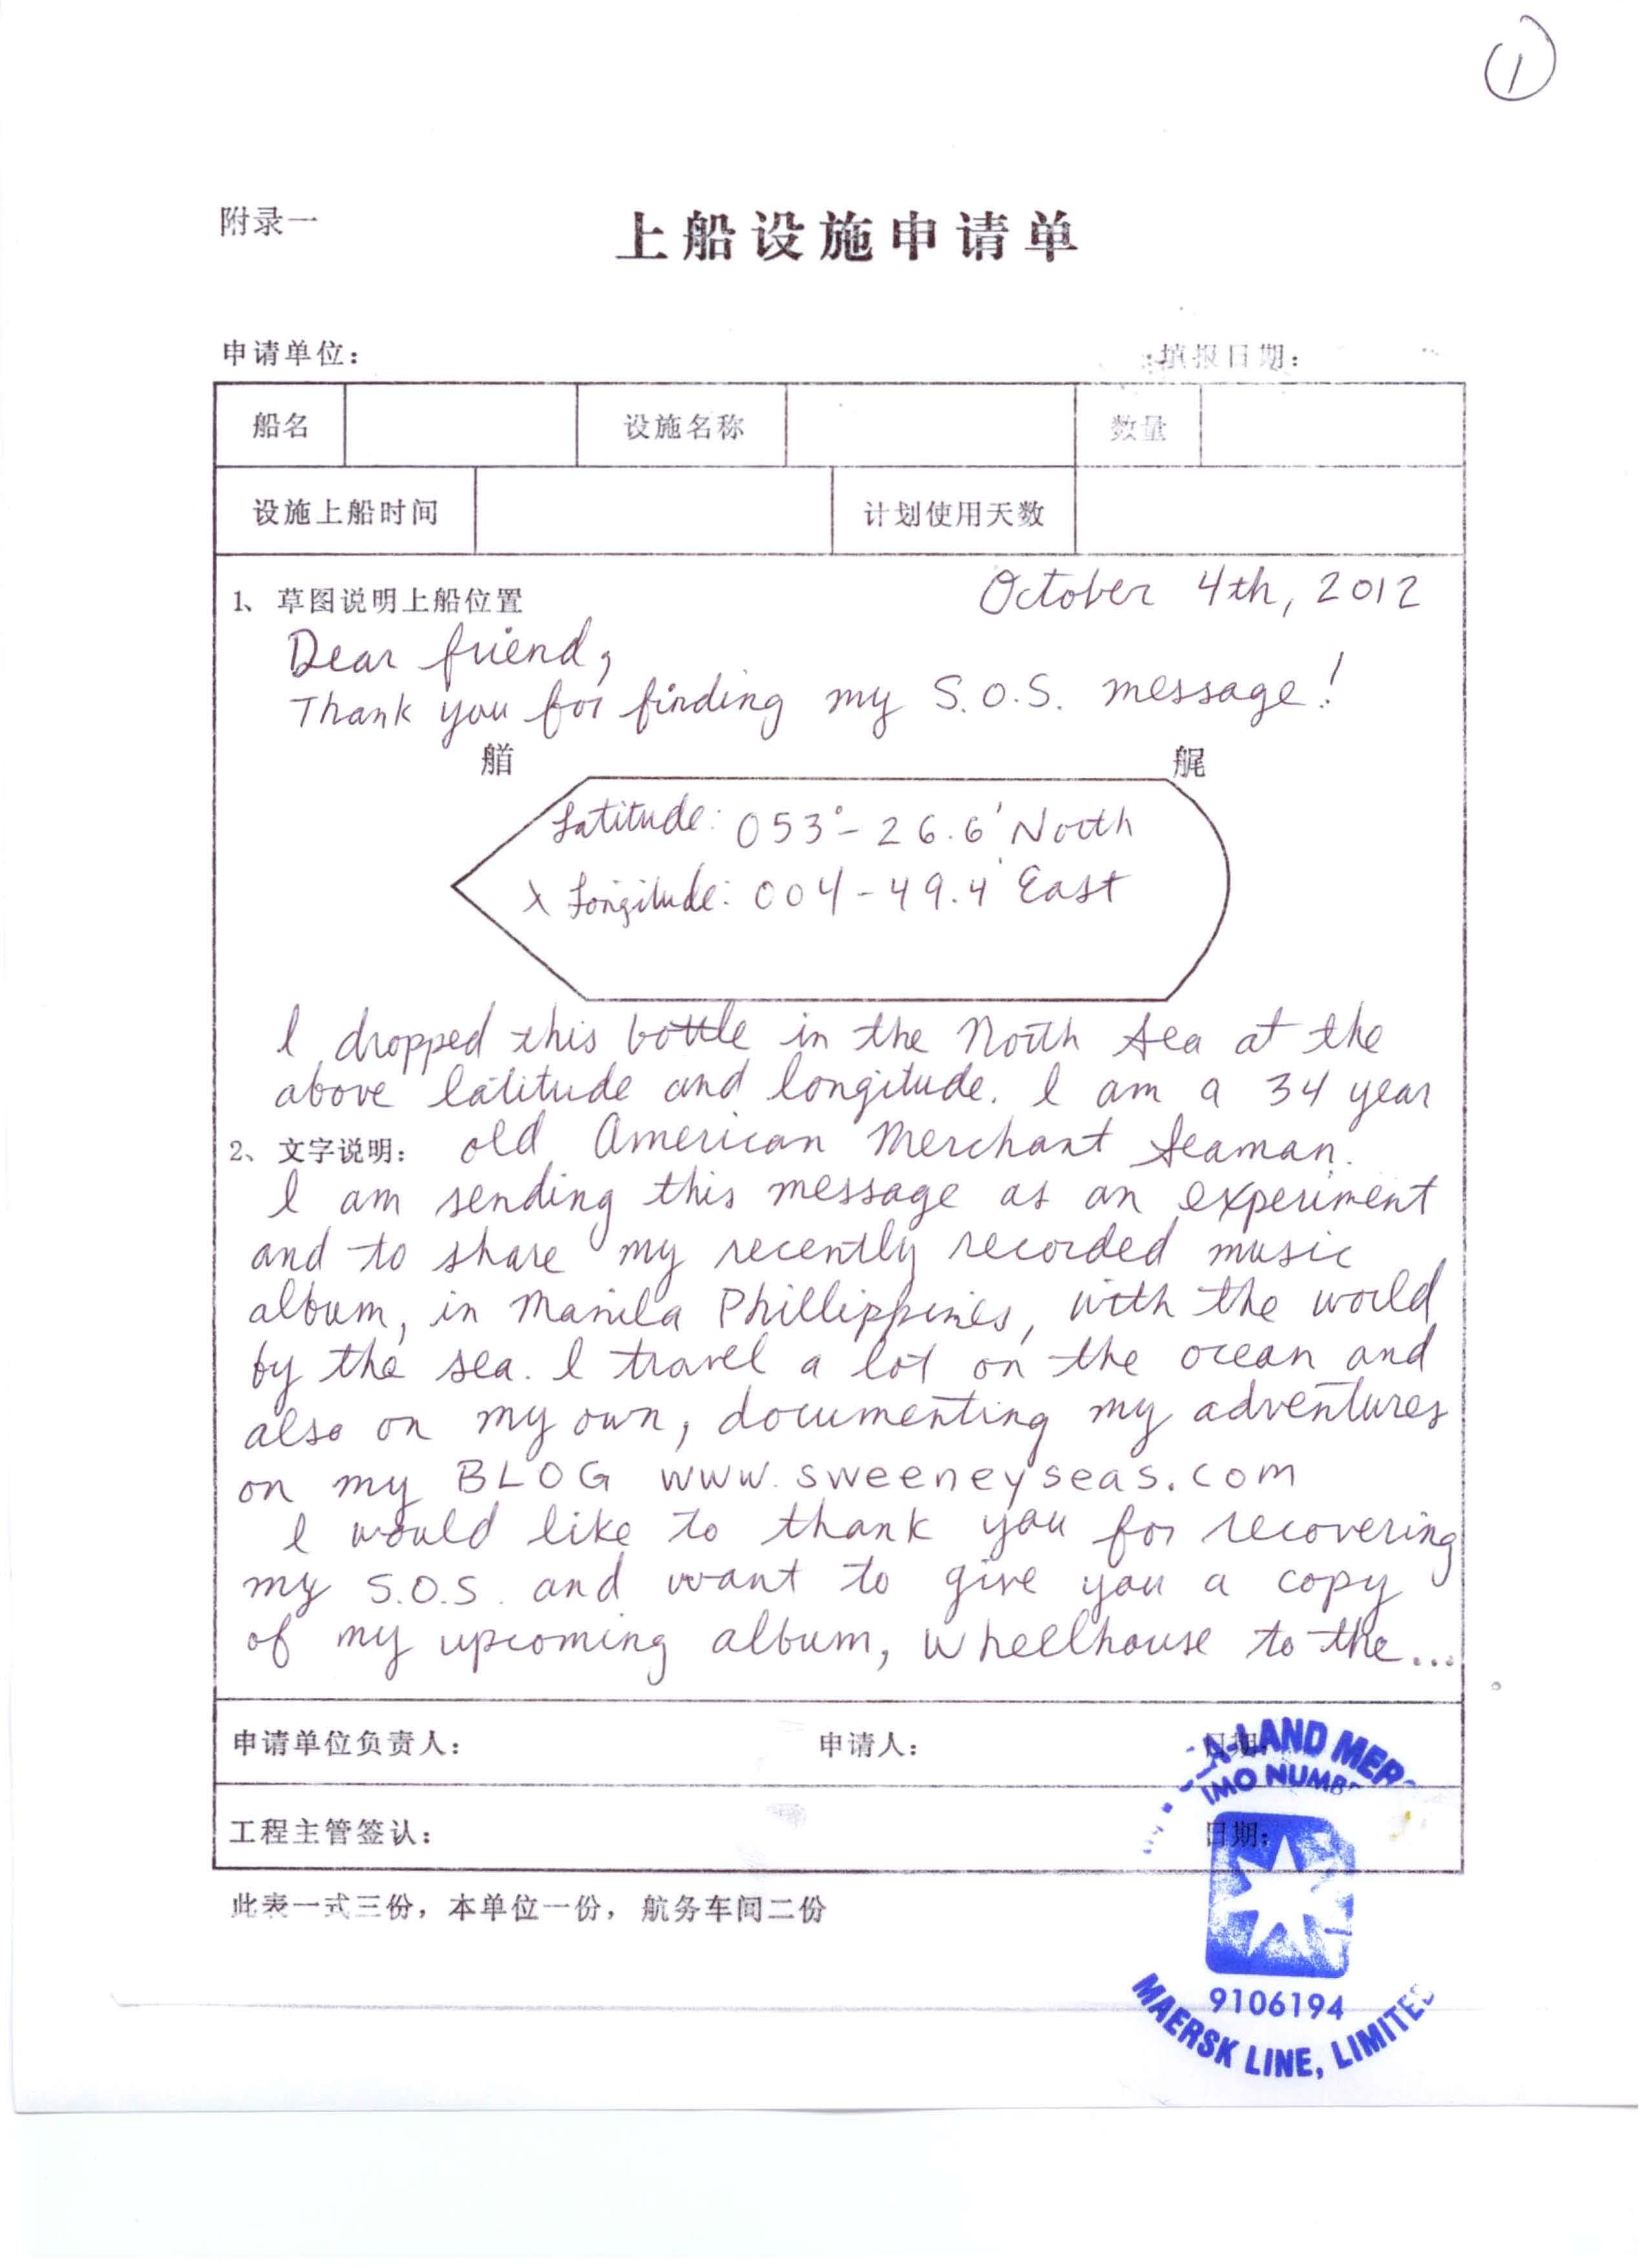 ①
附录一
上船设施申请单
申请单位：
填报日期：
船名 设施名称 数量
设施上船时间 计划使用天数
1、草图说明上船位置
October 4th, 2012
Dear friend,
Thank you for finding my S.O.S. message!
艏 艉
Latitude: 053°-26.6' North
x Longitude: 004-49.4' East
I dropped this bottle in the North Sea at the
above latitude and longitude. I am a 34 year
2、文字说明： old American Merchant Seaman.
I am sending this message as an experiment
and to share my recently recorded music
album, in Manila Phillippines, with the world
by the sea. I travel a lot on the ocean and
also on my own, documenting my adventures
on my BLOG www.sweeneyseas.com
I would like to thank you for recovering
my S.O.S. and want to give you a copy
of my upcoming album, Wheelhouse to the...
申请单位负责人： 申请人： 日期：
工程主管签认： 日期：
此表一式三份，本单位一份，航务车间二份
-LAND MER
IMO NUMB
9106194
MAERSK LINE, LIMITED